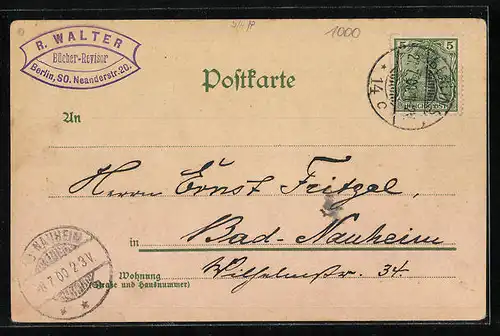 R. WALTER
Bücher-Revisor
Berlin, SO. Neanderstr. 20.
1000
5 5
14 c
Postkarte
An
Herrn Ernst Fritzel,
in Bad-Nauheim
Wilhelmstr. 34.
NAUHEIM
7.00 2-3 V.
Wohnung
(Straße und Hausnummer)